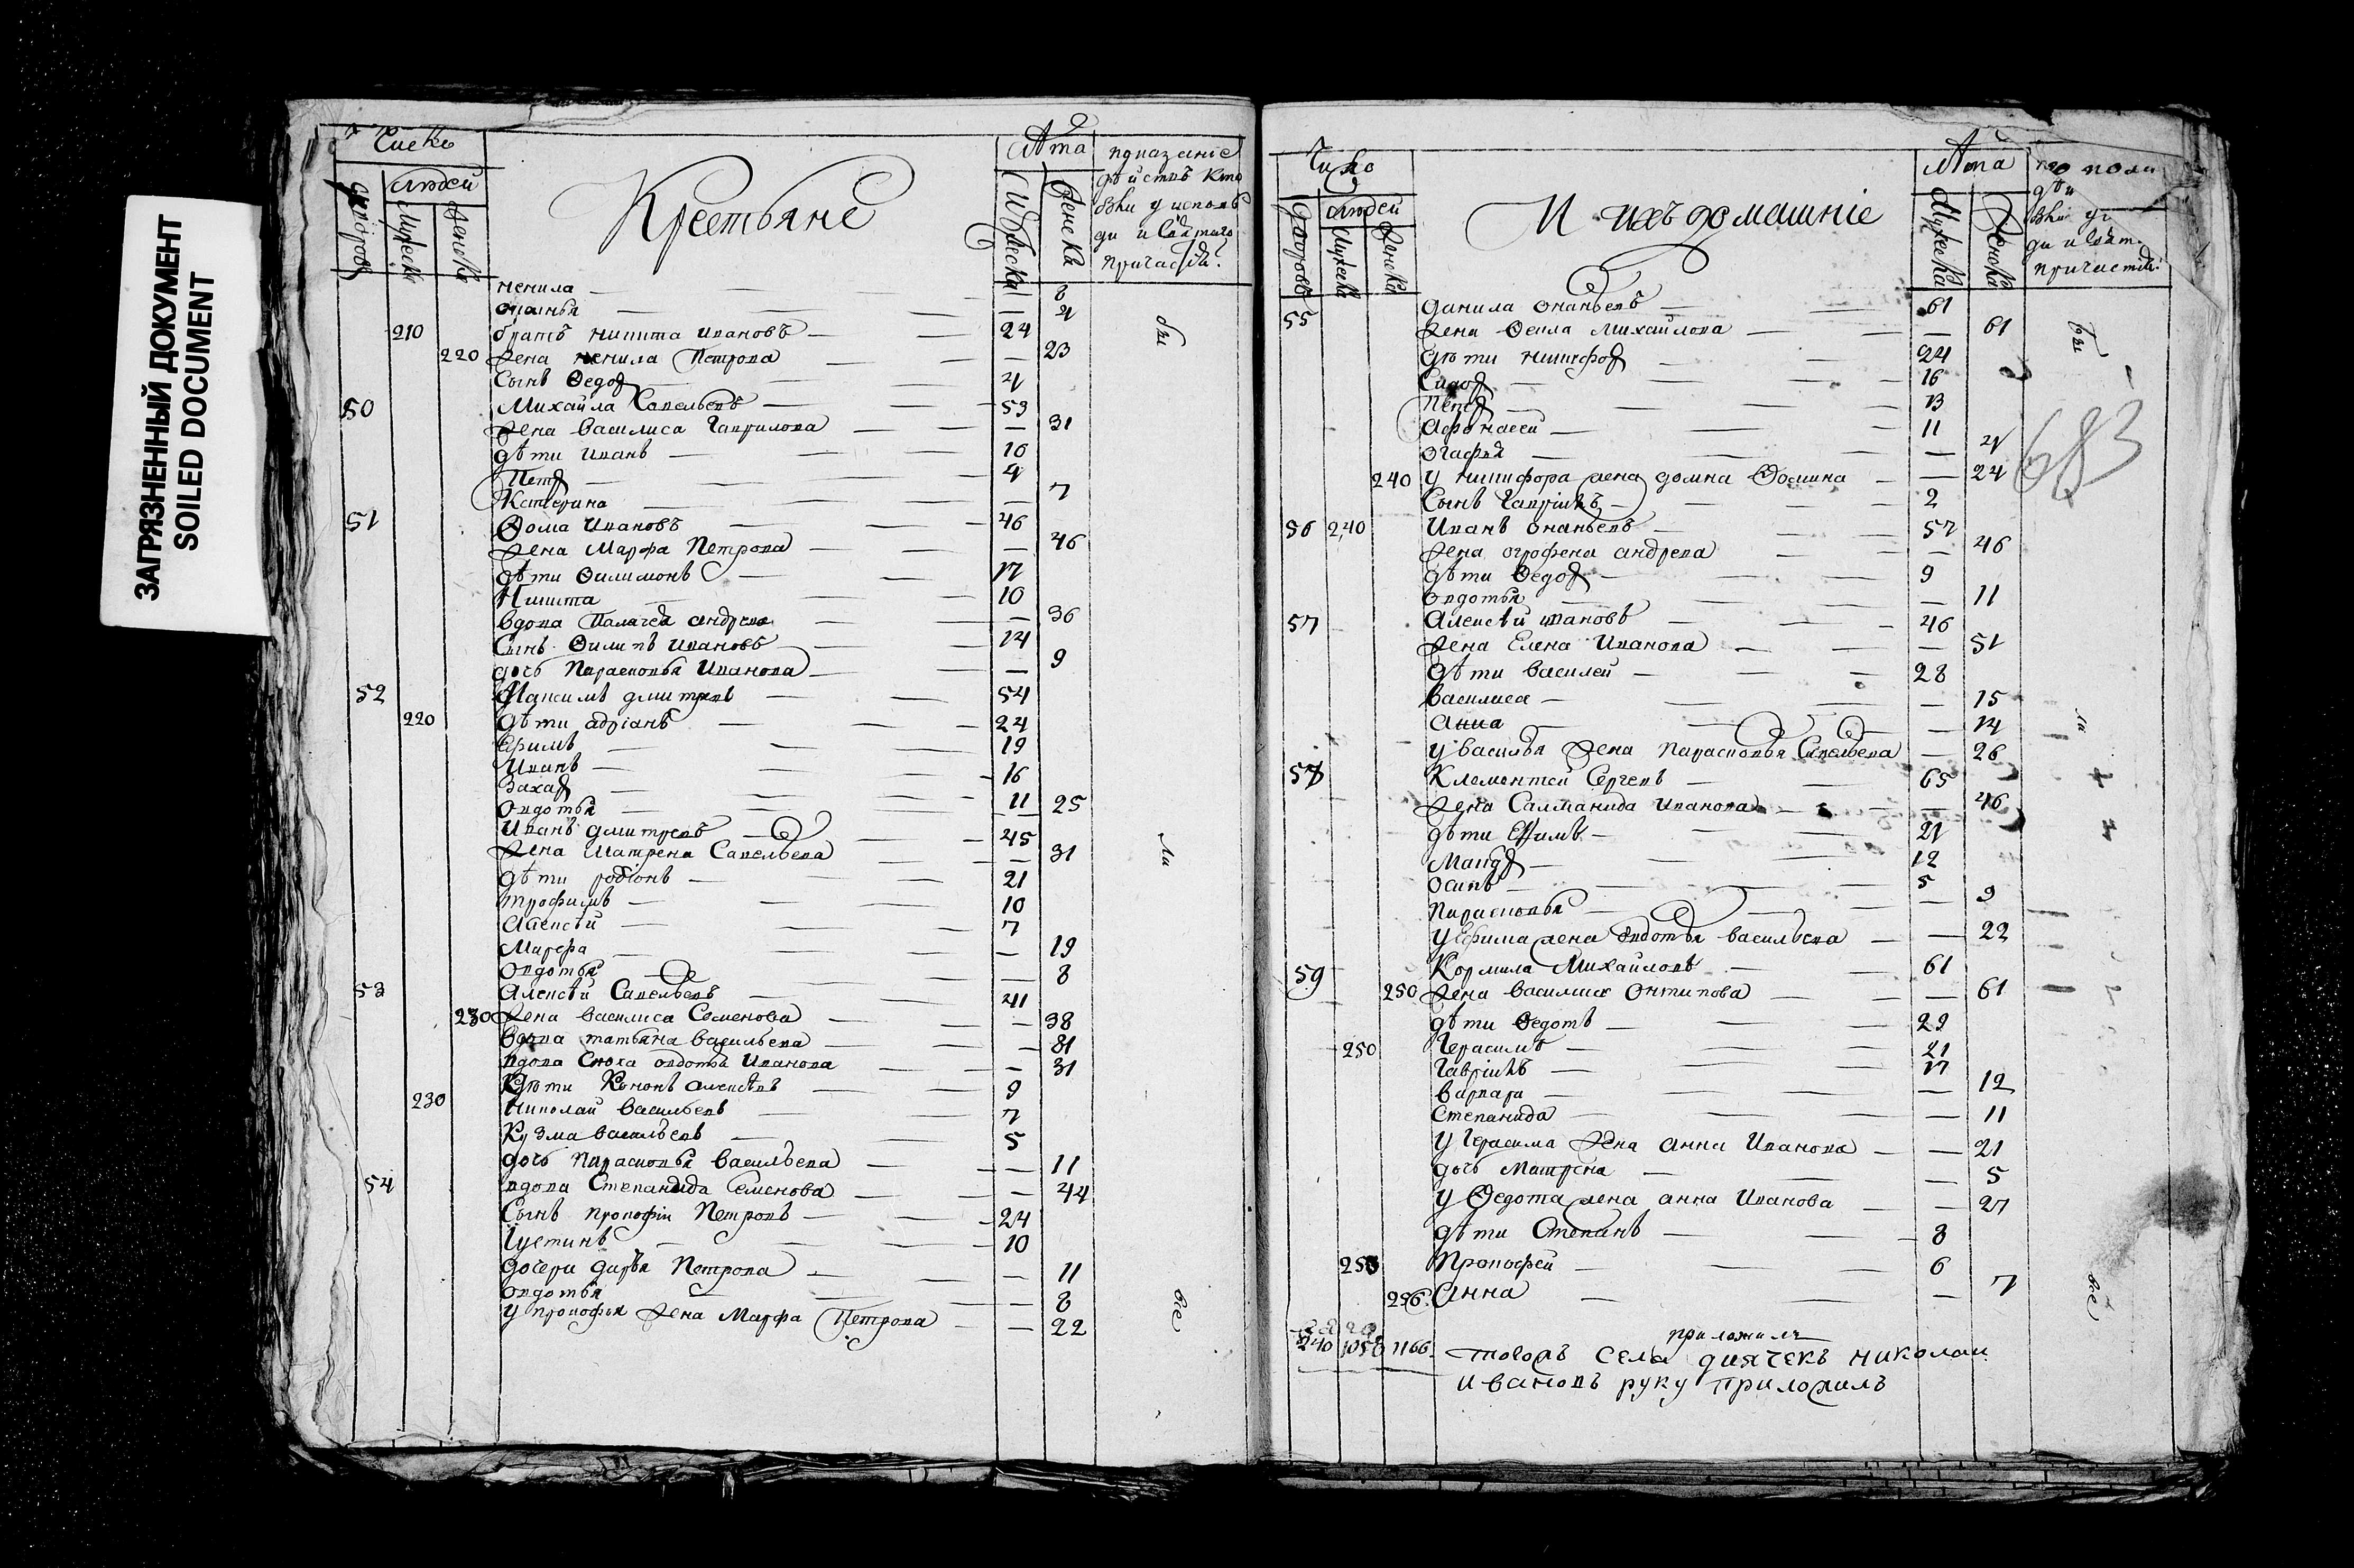 ЗАГРЯЗНЕННЫЙ ДОКУМЕНТ
SOILED DOCUMENT
Число
людей
дворовъ
Мужеска
Женска
Крестьяне
Лѣта
Мужеска
Женска
показание
дѣйствъ кто
Ненила — 8
Онанья — 4
210 братъ Никита Ивановъ — 24
220 жена Ненила Петрова — 23
Сынъ Ѳедоръ — 4
50 Михайла Савельевъ — 59
жена Василиса Гаврилова — 31
дѣти Иванъ — 10
Петръ — 4
Катерина — 7
51 Ѳома Ивановъ — 46
жена Марфа Петрова — 46
дѣти Филимонъ — 17
Никита — 10
вдова Палагея Андрева — 36
Сынъ Филипъ Ивановъ — 14
дочь Парасковья Иванова — 9
52 Максимъ Дмитревъ — 54
220 дѣти Адріанъ — 24
Ефимъ — 19
Иванъ — 16
Захаръ — 11
Овдотья — 25
Иванъ Дмитревъ — 45
жена Матрена Савельева — 31
дѣти Родіонъ — 21
Трофимъ — 10
Алексѣй — 7
Марфа — 19
Овдотья — 8
53 Алексѣй Савельевъ — 41
230 жена Василиса Семенова — 38
вдова Татьяна Васильева — 81
вдова Сноха Овдотья Иванова — 31
дѣти Кононъ Алексѣевъ — 9
230 Николай Васильевъ — 7
Кузма Васильевъ — 5
дочь Парасковья Васильева — 11
54 вдова Степанида Семенова — 44
Сынъ Прокофій Петровъ — 24
Іустинъ — 10
дочери Дарья Петрова — 11
Овдотья — 8
у Прокофья жена Марфа Петрова — 22
бы
ли
все
Число
людей
дворовъ
Мужеска
Женска
И ихъ домашніе
Лѣта
Мужеска
Женска
55 Данила Онаньевъ — 61
жена Ѳекла Михайлова — 61
дѣти Никифоръ — 24
Сидоръ — 16
Петръ — 13
Афонасей — 11
Огафья — 4
240 у Никифора жена Домна Ѳомина — 24
Сынъ Гавріилъ — 2
56 240 Иванъ Онаньевъ — 57
жена Огрофена Андрева — 46
дѣти Ѳедоръ — 9
Овдотья — 11
57 Алексѣй Ивановъ — 46
жена Елена Иванова — 51
дѣти Василей — 28
Василиса — 15
Анна — 14
у Василья жена Парасковья Савельева — 26
58 Клементей Сергевъ — 65
жена Салманида Иванова — 46
дѣти Ефимъ — 21
Мандръ — 12
Осипъ — 5
Парасковья — 9
у Ефима жена Овдотья Васильева — 22
59 Кормила Михайловъ — 61
250 жена Василиса Онтипова — 61
дѣти Ѳедотъ — 29
250 Герасимъ — 21
Гавріилъ — 17
Варвара — 12
Степанида — 11
у Герасима жена Анна Иванова — 21
дочь Матрена — 5
у Ѳедота жена Анна Иванова — 27
дѣти Степанъ — 8
253 Прокофей — 6
256 Анна — 7
240 1050 1166
бы
ли
все
683
приложилъ
тогожъ села диячекъ Николаи
Ивановъ руку приложилъ